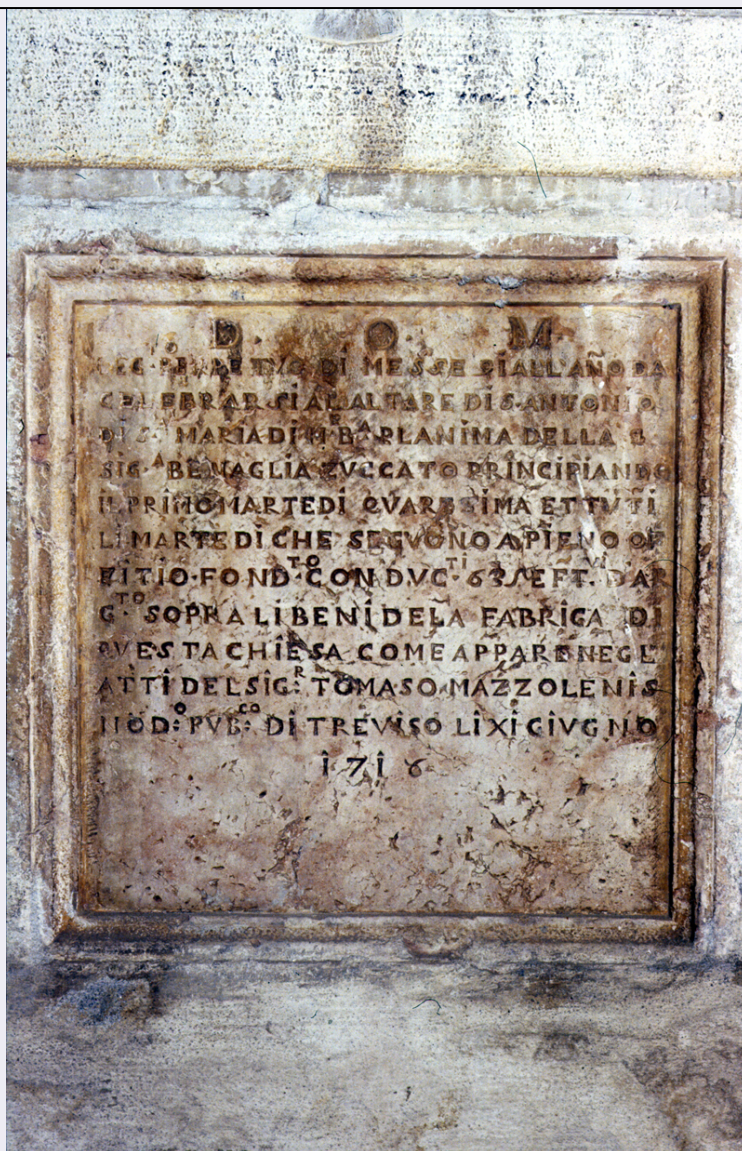 D. O. M.
LEG. PERPETVO DI MESSE ALL'AÑO DA
CELEBRARSI AL ALTARE DI S. ANTONIO
DI S.ᵀᴬ MARIA DI Bᴬ ANIMA DELLA
SIG.ᴬ BENAGLIA ZVCCATO PRINCIPIANDO
IL PRIMO MARTEDI QVARESIMA ET TVTI
LI MARTEDI CHE SEGVONO A PIENO OF
FITIO. FOND.ᵀᴼ CON DVC.ᵀᴵ
SOPRA LI BENI DE LA FABRICA DI
QVESTA CHIESA COME APPARE NEGL'
ATTI DEL SIG:ᴿ TOMASO MAZZOLENIS
NOD:ᴼ PVB:ᶜᴼ DI TREVISO LI XI GIVGNO
1716